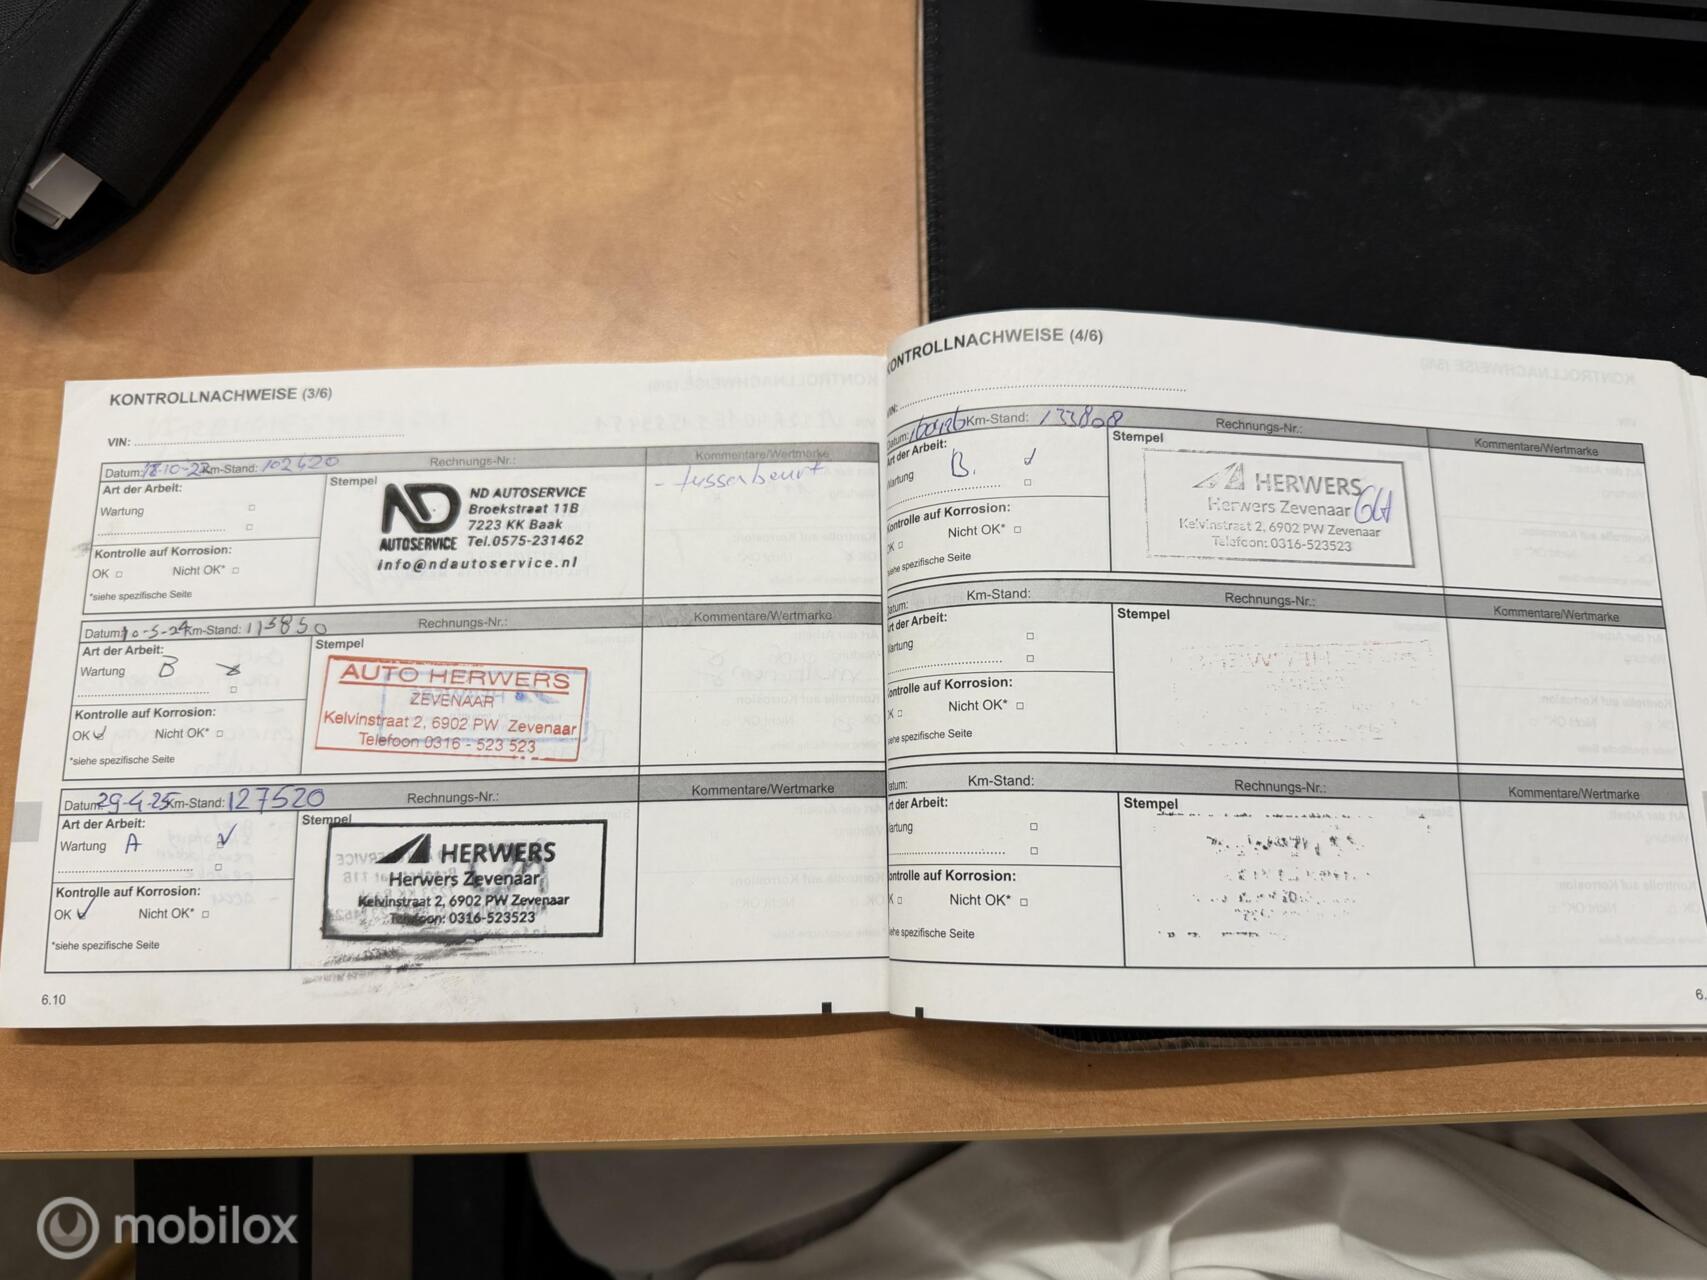 KONTROLLNACHWEISE (3/6)
VIN:
Datum: 18-10-22 Km-Stand: 102420 Rechnungs-Nr.: Kommentare/Wertmarke
Art der Arbeit:
Wartung
Stempel
ND AUTOSERVICE
ND AUTOSERVICE
Broekstraat 11B
7223 KK Baak
Tel.0575-231462
info@ndautoservice.nl
- tussenbeurt
Kontrolle auf Korrosion:
OK Nicht OK*
*siehe spezifische Seite
Datum: 10-5-24 Km-Stand: 113850 Rechnungs-Nr.: Kommentare/Wertmarke
Art der Arbeit:
Wartung B
Stempel
AUTO HERWERS
ZEVENAAR
Kelvinstraat 2, 6902 PW Zevenaar
Telefoon 0316 - 523 523
Kontrolle auf Korrosion:
OK Nicht OK*
*siehe spezifische Seite
Datum: 29-4-25 Km-Stand: 127520 Rechnungs-Nr.: Kommentare/Wertmarke
Art der Arbeit:
Wartung A
Stempel
HERWERS
Herwers Zevenaar
Kelvinstraat 2, 6902 PW Zevenaar
Telefoon: 0316-523523
Kontrolle auf Korrosion:
OK Nicht OK*
*siehe spezifische Seite
6.10
KONTROLLNACHWEISE (4/6)
VIN:
Datum: 160426 Km-Stand: 133808 Rechnungs-Nr.: Kommentare/Wertmarke
Art der Arbeit:
Wartung B.
Stempel
HERWERS
Herwers Zevenaar
Kelvinstraat 2, 6902 PW Zevenaar
Telefoon: 0316-523523
Kontrolle auf Korrosion:
OK Nicht OK*
*siehe spezifische Seite
Datum: Km-Stand: Rechnungs-Nr.: Kommentare/Wertmarke
Art der Arbeit:
Wartung
Stempel
Kontrolle auf Korrosion:
OK Nicht OK*
siehe spezifische Seite
Datum: Km-Stand: Rechnungs-Nr.: Kommentare/Wertmarke
Art der Arbeit:
Wartung
Stempel
Kontrolle auf Korrosion:
OK Nicht OK*
siehe spezifische Seite
6.
mobilox